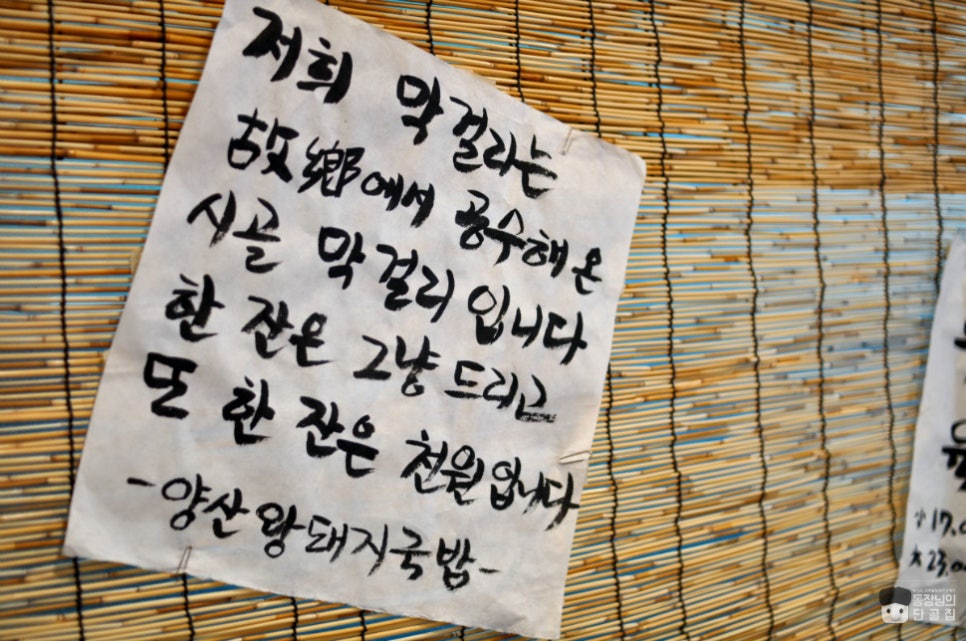 저희 막걸리는
故鄕에서 공수해 온
시골 막걸리 입니다
한 잔은 그냥 드리고
또 한 잔은 천원입니다
-양산왕돼지국밥-
小 17.0
大 23.00
동장님의
단골집